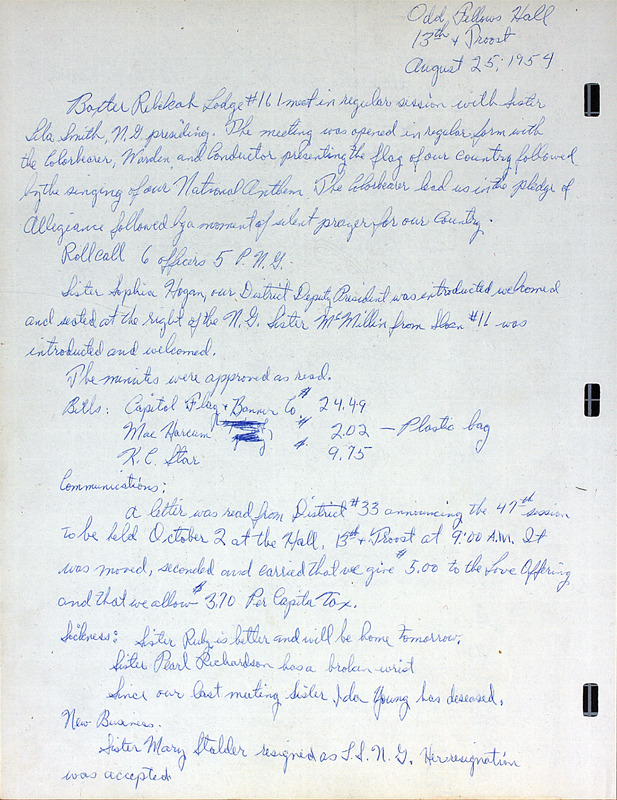 Odd Fellows Hall
13th & Troost
August 25, 1954
Baxter Rebekah Lodge #161 meet in regular session with Sister
Lela Smith, N.G. presiding. The meeting was opened in regular form with
the Colorbearer, Warden and Conductor presenting the flag of our country followed
by the singing of our National Anthem. The Colorbearer lead us in the pledge of
Allegiance followed by a moment of silent prayer for our Country.
Rollcall 6 officers 5 P.N.G.
Sister Sophia Hogan, our District Deputy President was introduced welcomed
and seated at the right of the N.G. Sister McMillin from Sloan #11 was
introduced and welcomed.
The minutes were approved as read.
Bills: Capitol Flag & Banner Co $ 24.49
Mae Harcum $ 2.02 — Plastic bag
K.C. Star $ 9.75
Communications:
A letter was read from District #33 announcing the 47th session
to be held October 2 at the Hall, 13th & Troost at 9:00 A.M. It
was moved, seconded and carried that we give $5.00 to the Love Offering
and that we allow $3.70 Per Capita Tax.
Sickness: Sister Ruby is better and will be home tomorrow.
Sister Pearl Richardson has a broken wrist
Since our last meeting Sister Ida Young has deseased.
New Business.
Sister Mary Stalder resigned as L.S.N.G. Her resignation
was accepted